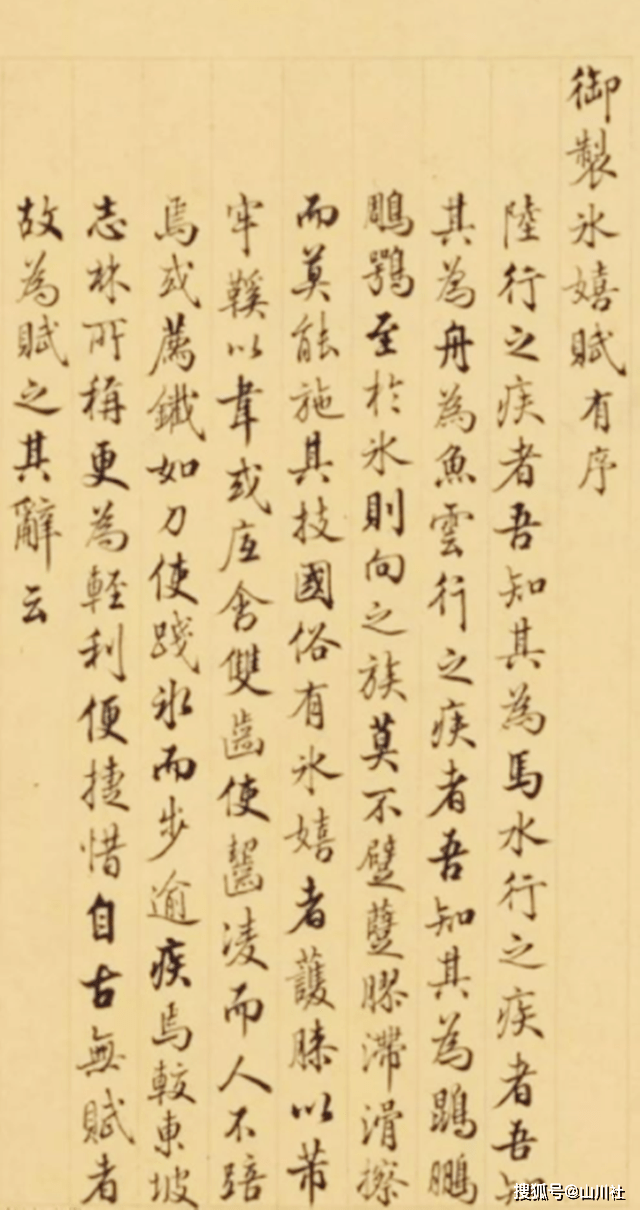 御製氷嬉賦有序
陸行之疾者吾知其為馬水行之疾者吾知
其為舟為魚雲行之疾者吾知其為鵾鵬
鵰鶚至於氷則向之族莫不躄躠膠滯滑擦
而莫能施其技國俗有氷嬉者護膝以芾
牢鞵以韋或底含雙齒使齧凌而人不踣
焉或薦鐵如刀使踐冰而步逾疾焉較東坡
志林所稱更為輕利便捷惜自古無賦者
故為賦之其辭云
搜狐号@山川社